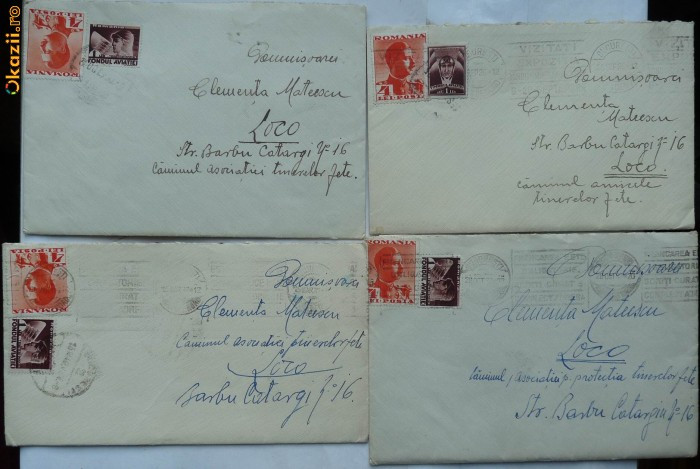 Okazii.ro
4
LEI·POSTA
ROMANIA
FONDUL AVIATIEI
Domnișoarei
Clementa Mateescu
Loco
Str. Barbu Catargi № 16
Căminul asociatiei tinerelor fete.
ROMANIA
4 LEI·POSTA
1 LEU
VIZITATI
Domnișoarei
Clementa
Mateescu
Str. Barbu Catargi № 16
Loco.
Căminul
tinerelor fete.
4
LEI·POSTA
ROMANIA
1
FONDUL AVIATIEI
Domnișoarei
Clementa Mateescu
Căminul asociatiei tinerelor fete
Loco
Barbu Catargi № 16.
ROMANIA
4
FONDUL AVIATIEI
Domnișoarei
Clementa Mateescu
Loco
Căminul, Asociatia p. protectia tinerelor fete,
Str. Barbu Catargiu № 16